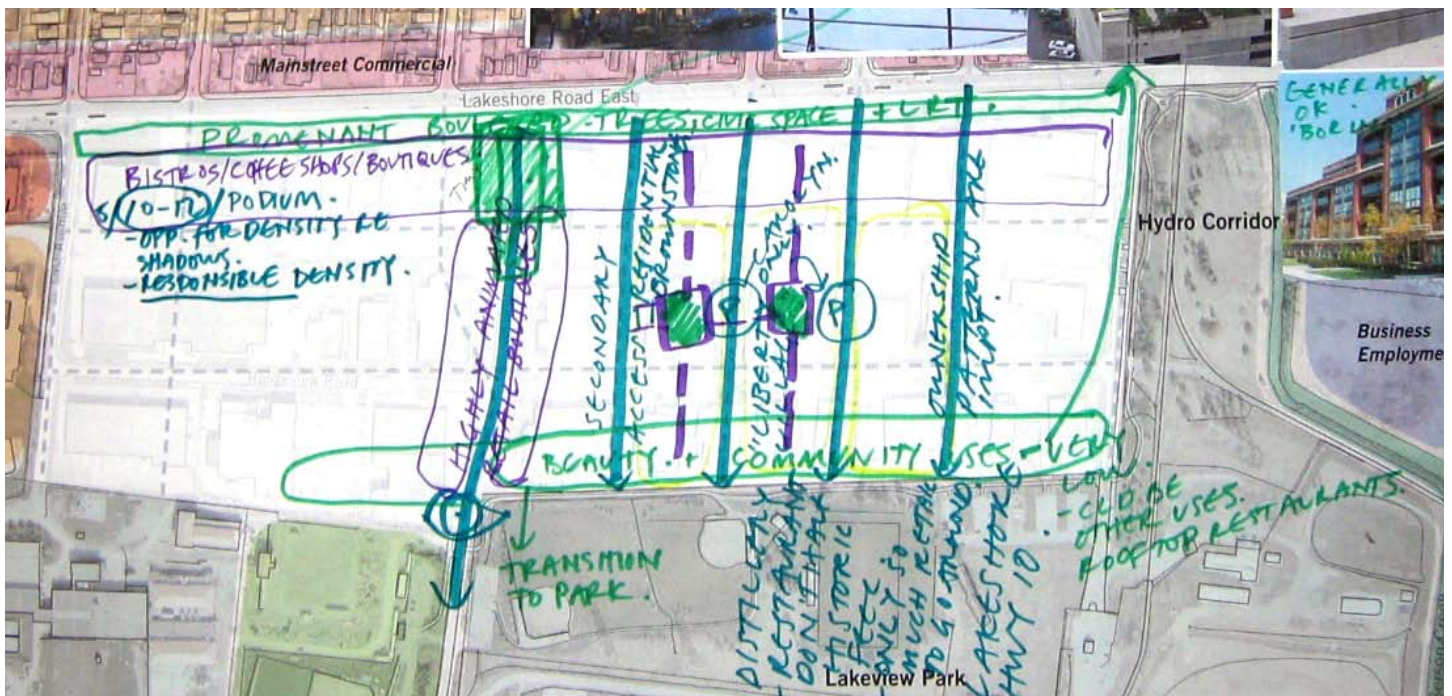 Mainstreet Commercial
Lakeshore Road East
PROMENANT BOULEVARD - TREES, CIVIC SPACE + LRT.
BISTROS/COFFEE SHOPS/BOUTIQUES
10-12/PODIUM.
- OPP. FOR DENSITY RE
SHADOWS.
- RESPONSIBLE DENSITY.
HIGHLY ANIMATED
RETAIL BOUTIQUES
SECONDARY
ACCESS
RESIDENTIAL
BROWNSTONE
'LIBERTO
VILLAGE
P
P
OWNERSHIP
PATTERNS ARE
IMPORTANT
BEAUTY + COMMUNITY USES - VERY
LOW.
- CLD BE
OTHER USES.
ROOFTOP RESTAURANTS.
TRANSITION
TO PARK.
DISTILLERY
- RESTAURANT
DON'T HAVE
HISTORIC
FEEL
- ONLY SO
MUCH RETAIL
TO GO AROUND.
LAKESHORE
HWY 10.
GENERALLY
OK.
Hydro Corridor
Business
Employme
Lakeview Park